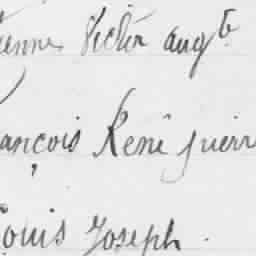 ienne Victor augte
ançois René pierr
ouis Joseph.